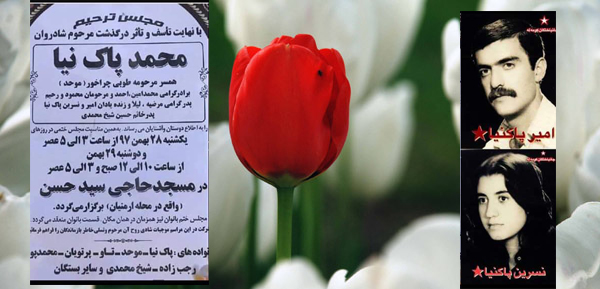 مجلس ترحیم
با نهایت تأسف و تأثر درگذشت مرحوم شادروان
محمد پاک نیا
همسر مرحومه طوبی چراخور (موحد)
برادر گرامی محمدامین، احمد و مرحومان محمود و رحیم
پدر گرامی مرضیه، لیلا و زنده یادان امیر و نسرین پاک نیا
پدر خانم حسین شیخ محمدی
را به اطلاع دوستان و آشنایان می رساند. به همین مناسبت مجلس ختمی در روزهای
یکشنبه ۲۸ بهمن ۹۷ از ساعت ۳ الی ۵ عصر
و دوشنبه ۲۹ بهمن
از ساعت ۱۰ الی ۱۲ صبح و ۳ الی ۵ عصر
در مسجد حاجی سید حسن
(واقع در محله ارمنیان) برگزار می گردد.
مجلس ختم بانوان نیز همزمان در همان مکان، قسمت بانوان منعقد می گردد
شرکت در این مراسم موجبات شادی روح آن مرحوم و تسلی خاطر بازماندگان را فراهم
خانواده های: پاک نیا - موحد - تاو - پرتویان - محمدپور
رجب زاده - شیخ محمدی و سایر بستگان
امیر پاکنیا
نسرین پاکنیا